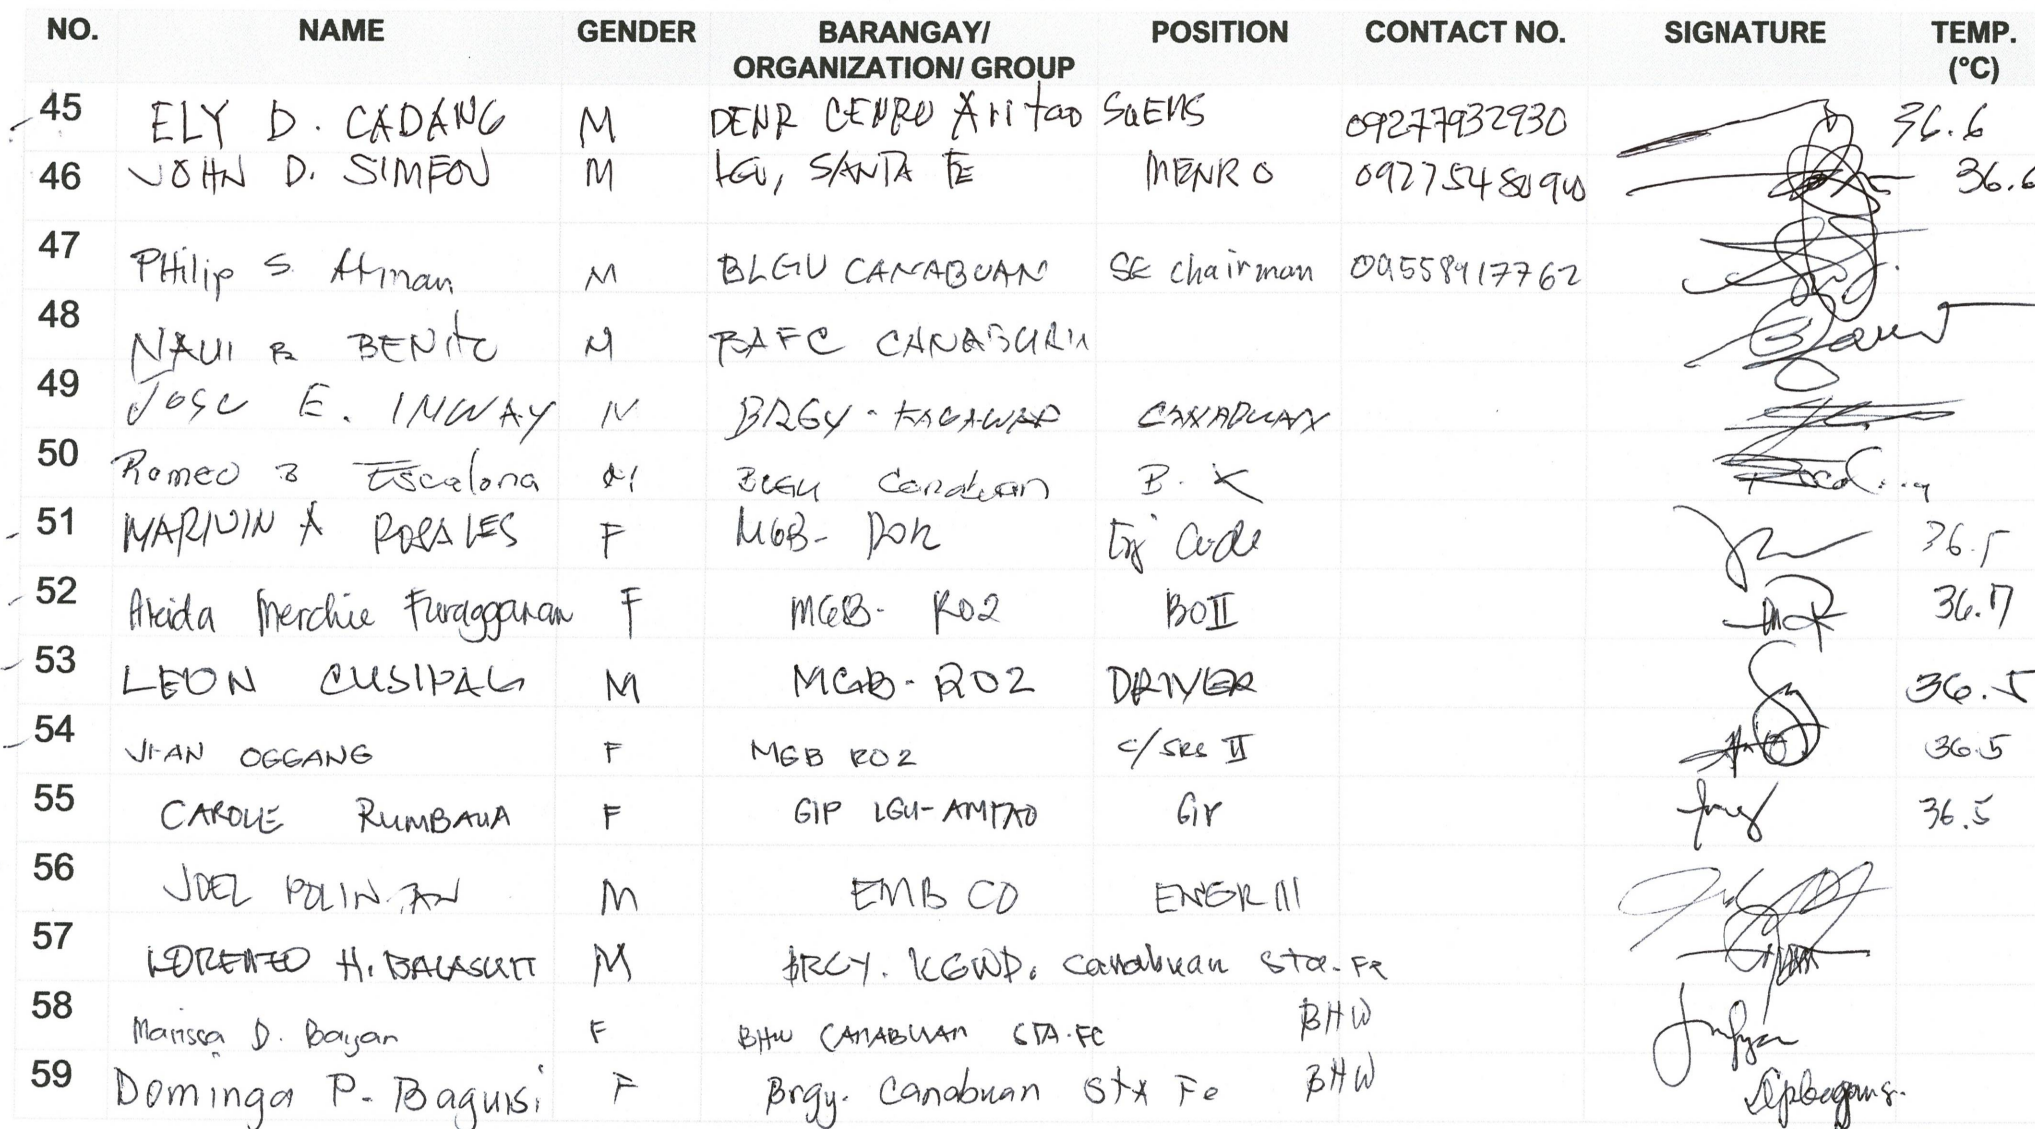 NO. NAME GENDER BARANGAY/ ORGANIZATION/ GROUP POSITION CONTACT NO. SIGNATURE TEMP. (°C)
45 ELY D. CADANG M DENR CENRO Aritao SuEMS 09277932930 36.6
46 JOHN D. SIMEON M LGU, SANTA FE MENRO 09275480940 36.6
47 PHilip S. Atman M BLGU CANABUAN SK chairman 09558917762
48 NAUI B BENitO M BAFC CANABUAN
49 JOSE E. INWAY M BRGY - KAGAWAD CANABUAN
50 Romeo B Escalona M BLGU Canabuan B. K
51 MARIVIN A ROSALES F MGB- F
52 Merchie Furagganan F MGB- RO2 BOII 36.7
53 LEON CUSIPAG M MGB- RO2 DRIVER 36.5
54 OGGANG F MGB RO2 II 36.5
55 CAROLE RUMBAUA F GIP LGU-ARITAO GIP 36.5
56 JOEL POLIN M EMB CO ENGR III
57 LORENZO H. M BRGY. KGWD. Canabuan Sta. Fe
58 Marissa D. Bayan F BHW CANABUAN STA. FE BHW
59 Dominga P. Baguisi F Brgy. Canabuan Sta Fe BHW